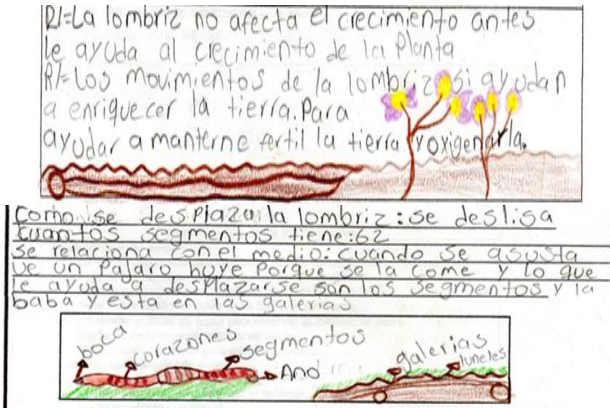 R/=La lombriz no afecta el crecimiento antes
le ayuda al crecimiento de la Planta
R/=Los movimientos de la lombriz si ayudan
a enriquecer la tierra. Para
ayudar a manterne fertil la tierra y oxigenarla.
como se desplaza la lombriz: se deslisa
cuantos segmentos tiene: 62
se relaciona con el medio: cuando se asusta
ve un Pajaro huye Porque se la come y lo que
le ayuda a desplazarse son los segmentos y la
baba y esta en las galerias
boca
corazones
segmentos
Ano
galerias
tuneles